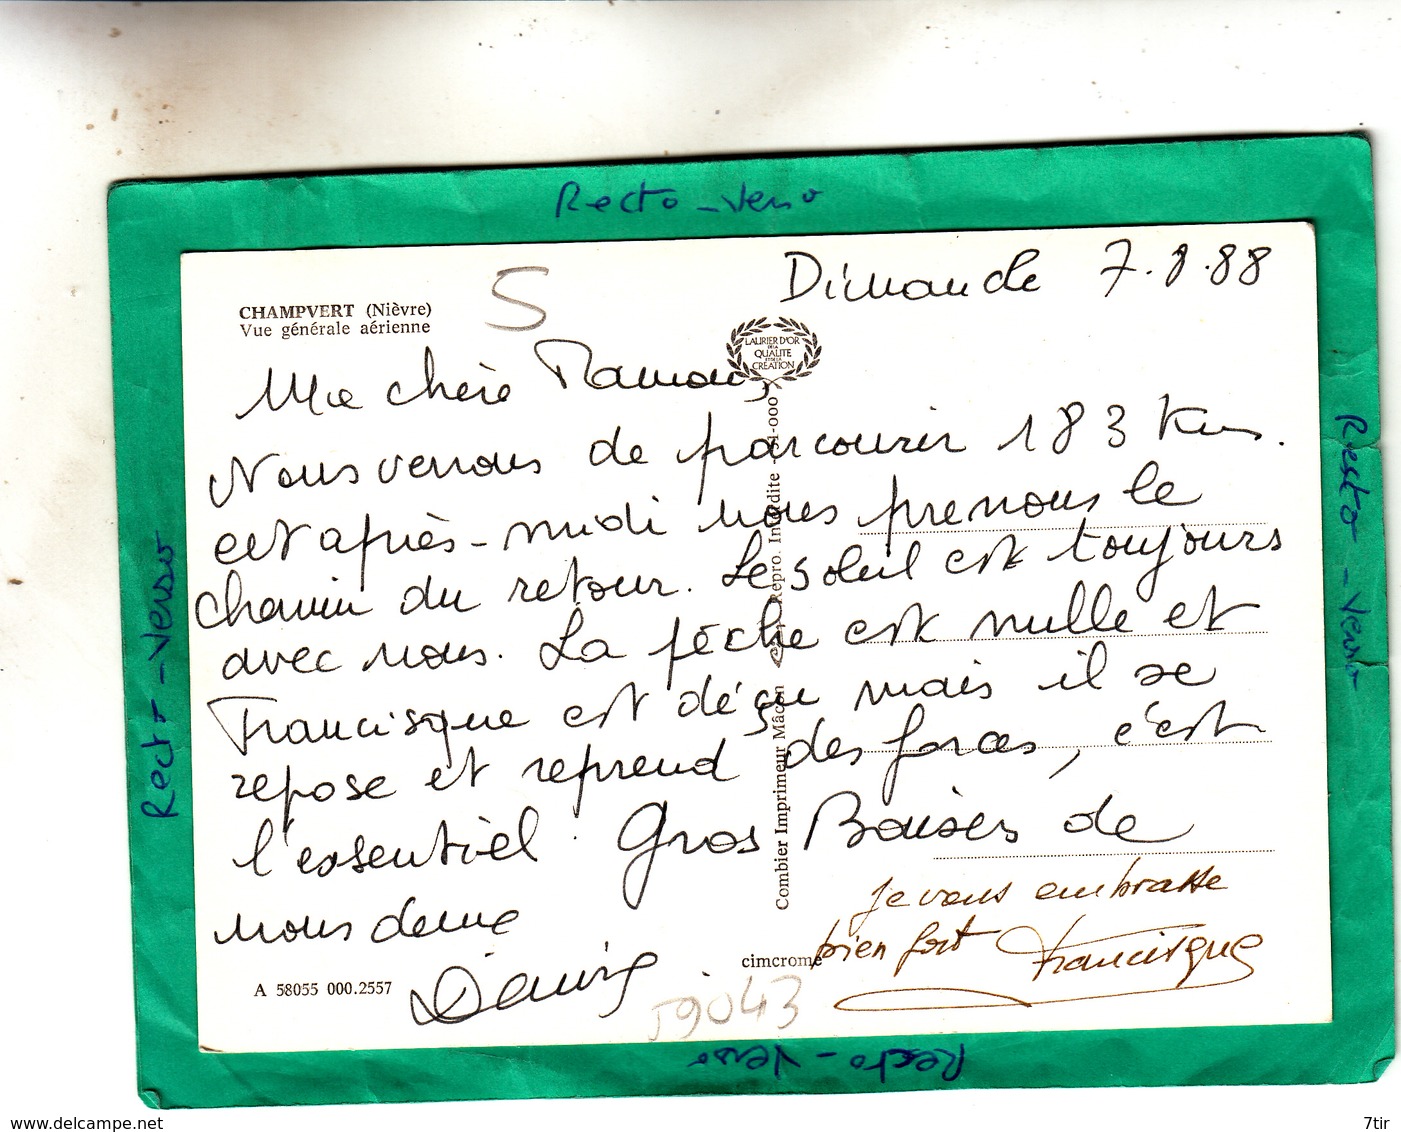 Recto - Verso
Dimanche 7.8.88
CHAMPVERT (Nièvre)
Vue générale aérienne
5
LAURIER D'OR
DE LA
QUALITE
ET DE LA
CREATION
Ma chère Maman,
Nous venons de parcourir 183 Kms.
cet après-midi nous prenons le
chemin du retour. Le soleil est toujours
avec nous. La pêche est nulle et
Francisque est déçu mais il se
repose et reprend des forces, c'est
l'essentiel. Gros Baisers de
nous deux
Je vous embrasse
bien fort Francisque
cimcrome
A 58055 000.2557
59043
Combier Imprimeur Mâcon
Repro. Interdite
Recto - Verso
Recto - Verso
Recto - Verso
www.delcampe.net
7tir